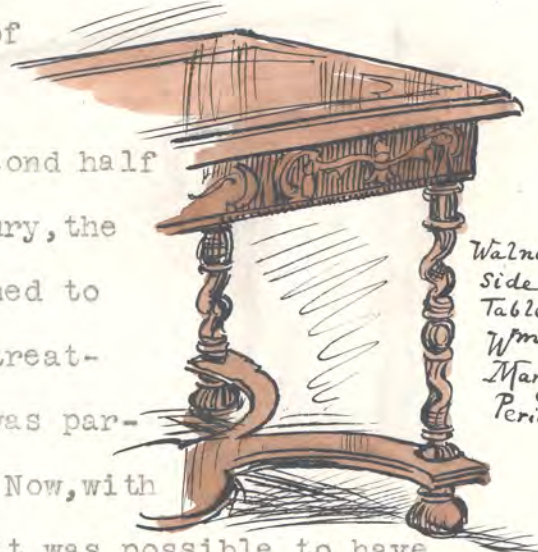 of
ond half
ury, the
ned to
treat-
was par-
Now, with
it was possible to have
side
Table
Wm
Peri